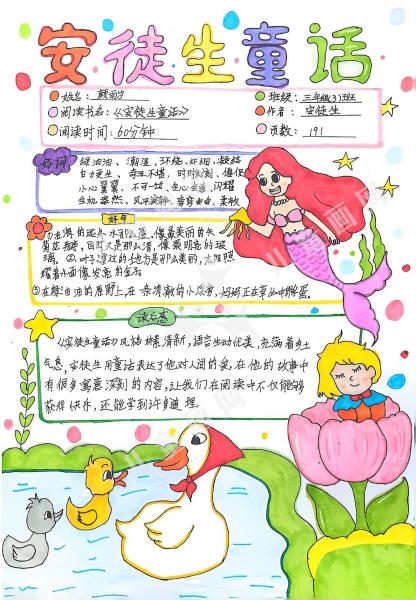 安徒生童话
姓名：
班级：三年级(3)班
阅读书名：《安徒生童话》
作者：安徒生
阅读时间：60分钟
页数：191
好词
绿油油、潮湿、环绕、凝结
自力更生、奇丑不堪、时时刻刻、
小心翼翼、不可一世、闪耀
生机盎然、风平浪静、弯弯曲曲、柔软
好句
①在海的远处，水那么蓝，像最美丽的矢
车菊花瓣，同时又是那么清，像最明亮的玻
璃。②叶子浮过的地方是那么美丽，太阳照
耀着水面像发亮的金子
③在绿油油的原野上，在一条清澈的小河旁，妈妈正在草丛中孵蛋。
读后感
《安徒生童话》风格朴素清新，语言生动优美，充满着乡土
气息，安徒生用童话表达了他对人间的爱，在他的故事中
有很多寓意深刻的内容，让我们在阅读中不仅能够
获得快乐，还能学到许多道理。